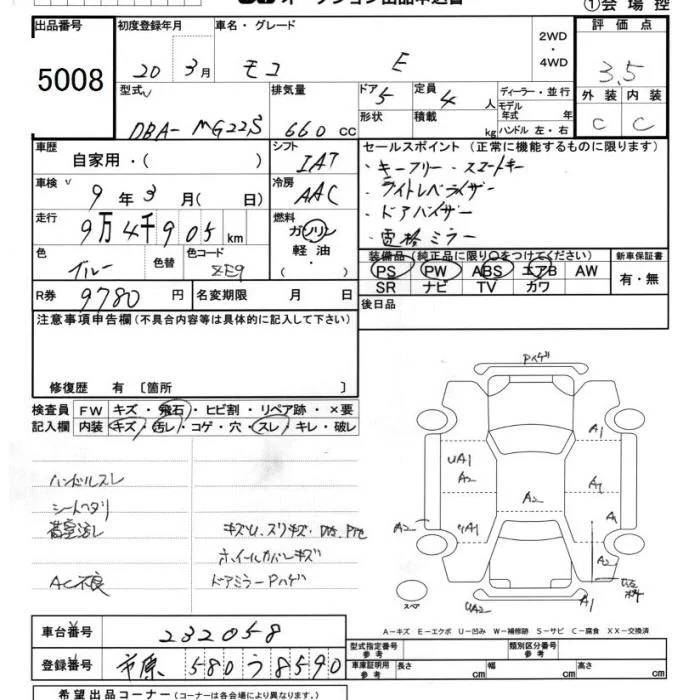 ①会場控
出品番号 5008
初度登録年月 20年 3月
車名・グレード モコ E
2WD・4WD
評価点 3.5
外装 C 内装 C
型式 DBA-MG22S
排気量 660 cc
ドア 5 形状
定員 4人 積載 kg
ディーラー・並行
モデル年式 年
ハンドル 左・右
車歴 自家用・( )
シフト IAT
セールスポイント (正常に機能するものに限ります)
・キーフリー・スマートキー
・ライトレベライザー
・ドアバイザー
・電格ミラー
車検 9年 3月( 日)
冷房 AAC
走行 9万4千905km
燃料 ガソリン 軽油・( )
色 ブルー 色替 色コード
装備品 (純正品に限り○をつけてください)
PS PW ABS エアB AW
SR ナビ TV カワ
新車保証書 有・無
R券 9780円 名変期限 月 日
後日品
注意事項申告欄 (不具合内容等は具体的に記入して下さい)
修復歴 有 〔箇所 〕
検査員 FW キズ・飛石・ヒビ割・リペア跡・×要
記入欄 内装 キズ・汚レ・コゲ・穴・スレ・キレ・破レ
ハンドルスレ
シートヘタリ
AC不良
ホイールカバーキズ
ドアミラーPハゲ
Pハゲ
A1
UA1
A2
A2
A1
A2
A2
UA2
A1
スペア
A-キズ E-エクボ U-凹み W-補修跡 S-サビ C-腐食 XX-交換済
車台番号 232058
登録番号 市原 580 う 8590
型式指定番号 類別区分番号
車庫証明用参考 長さ cm 幅 cm 高さ cm
希望出品コーナー (コーナーは各会場により異なります。)